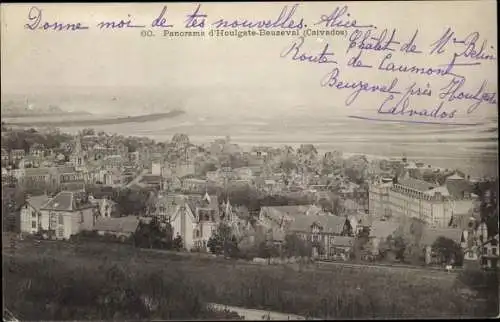 Donne moi de tes nouvelles. Alice
60. Panorama d'Houlgate-Beuzeval (Calvados)
Chalet de Mme Belin
Route de Caumont
Beuzeval près Houlgate
Calvados